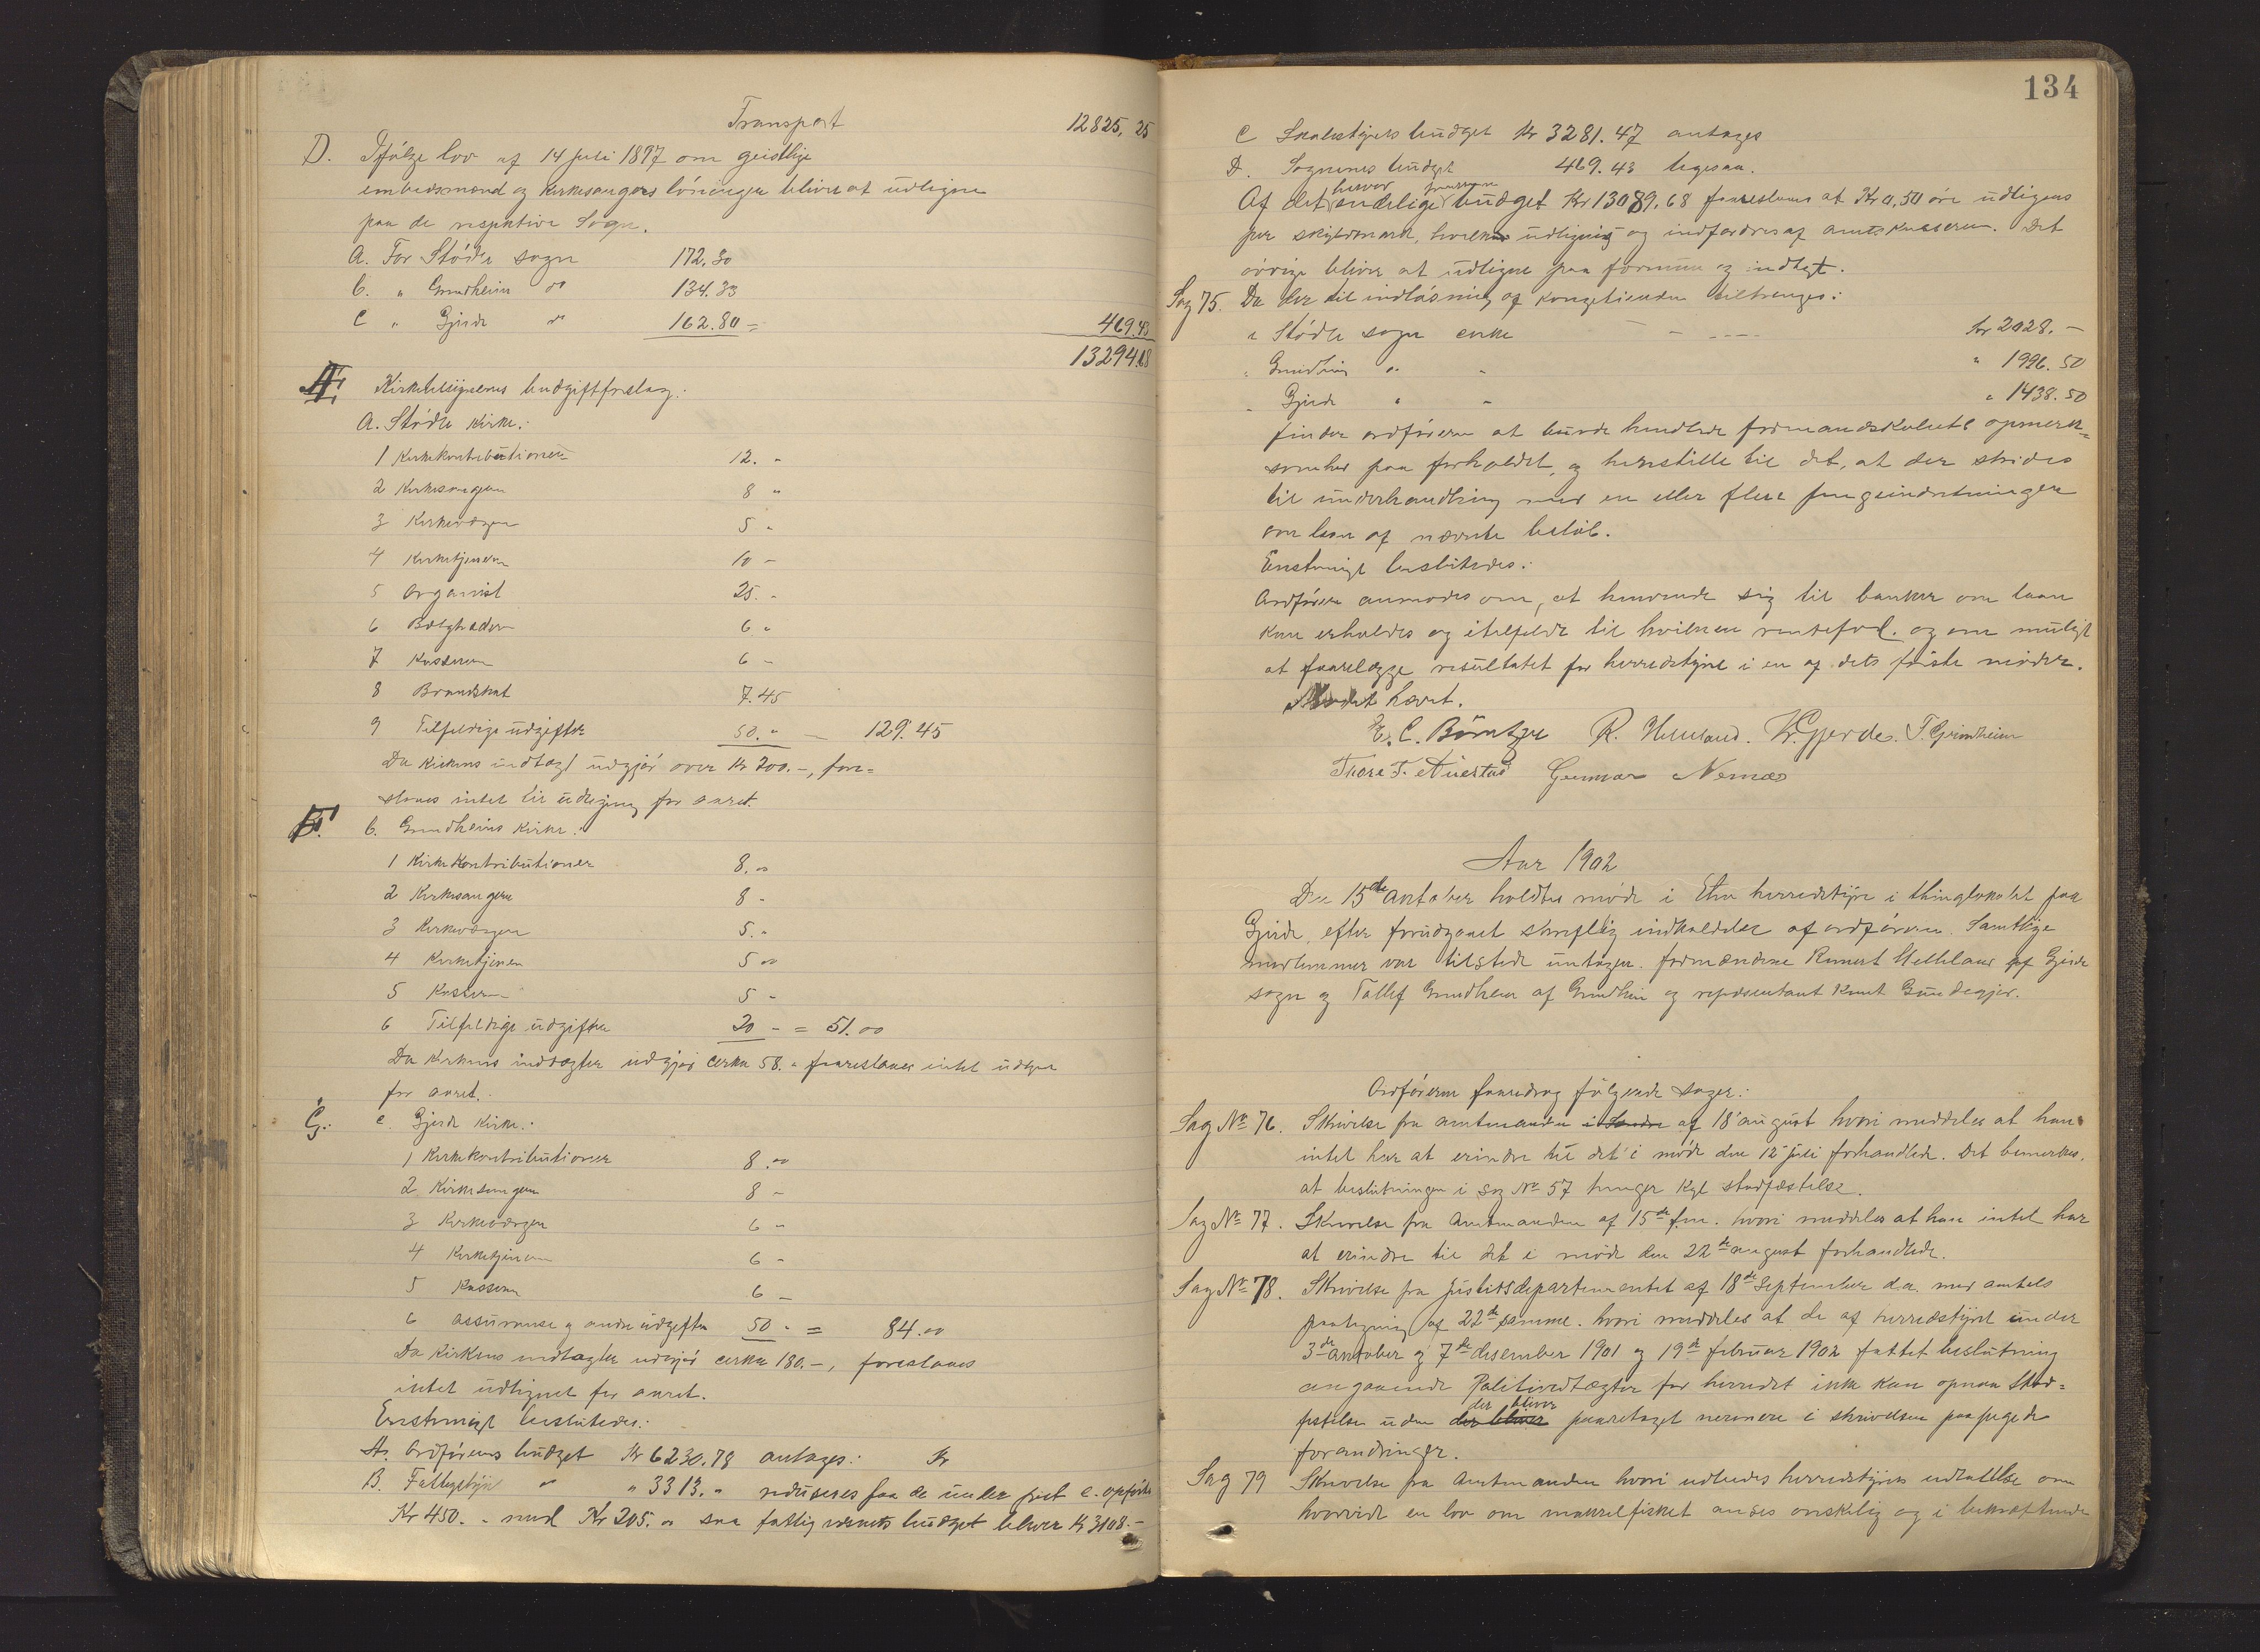 Transport 12825,25
D. Ifølge lov af 14 juli 1897 om geistlige
embedsmænd og kirkesangers lönninger bliver at udligne
paa de respektive Sogn.
A. For Stödle sogn 172.30
b. " Grindheim do 134.33
C " Gjerde do 162.80 = 469.43
13294.68
Kirketilsynenes budgiftforslag:
A. Stödle Kirke:
1 Kirkekontributioner 12. "
2 Kirkesangeren 8 "
3 Kirkeværgen 5 "
4 Kirketjeneren 10 -
5 Organist 25. -
6 Bælgtræder 6 "
7 Kassereren 6 -
8 Brandskat 7.45
9 Tilfeldige udgifter 50. " - 129.45
Da Kirkens indtægt udgjör over Kr 200.-, fore=
slaaes intet til udligning for aaret.
b. Grindheims Kirke:
1 Kirkekontributioner 8.00
2 Kirkesangeren 8 -
3 Kirkeværgen 5. "
4 Kirketjenen 5 00
5 Kasseren 5 -
6 Tilfeldige udgifter 20 - = 51.00
Da Kirkens indtægter udgjör cirka 58. " foreslaaes intet udlignet
for aaret.
c. Gjerde Kirke:
1 Kirkekontributioner 8.00
2 Kirkesangeren 8 -
3 Kirkeværgen 6 -
4 Kirketjeneren 6 -
5 Kasseren 6 -
6 assuranse og andre udgifter 50 - = 84.00
Da Kirkens indtægter udgjör cirka 180.-, foreslaaes
intet udlignet for aaret.
Enstemigt besluttedes:
A. Ordförerens budget Kr 6230.78 antages: Kr
B. Fattigstyrets " " 3313. " reduseres paa de under post c. opförte
Kr 450. - med Kr 205.00 saa fattigvæsnets budget bliver Kr 3108.-
134
C Skolestyrets budget Kr 3281.47 antages
D. Sognenes budget 469.43 ligesaa.
Af det herved endelige budget Kr 13089.68 foreslaaes at Kr 0,50 öre udlignes
per skyldmark, hvilken udligning og indfordres af amtskassereren. Det
övrige bliver at udligne paa formue og indtægt.
Sag 75. Da der til indlösning af kongetienden tiltrenges:
i Stödle sogn cirka - - Kr 2028.-
" Grindheim " " " 1996.50
" Gjerde " " " 1438.50
finder ordföreren at burde henlede formandskabets opmerk=
somhed paa forholdet, og henstille til det, at der skrides
til underhandling med en eller flere pengeindretninger
om laan af nævnte belöb.
Enstemigt besluttedes:
Ordförer anmodes om, at henvende sig til banker om laan
kan erholdes og itilfelde til hvilken rentefod. og om muligt
at forelægge resultatet for herredstyret i en af dets förste möder.
Mödet hævet.
E. C. Börretzen R. Helleland. K. Gjerde. T. Grindheim
Thore T. Austad Gunnar Nernæs
Aar 1902
Den 15de Oktober holdtes möde i Etne herredstyre i thinglokalet paa
Gjerde, efter forudgaaet skreftlig indkaldelse af ordföreren. Samtlige
medlemmer var tilstede untagen formændene Rumert Helleland af Gjerde
sogn og Tollef Grindheim af Grindheim og representant Knut Gundegjer.
Ordföreren foredrog fölgende sager:
Sag No 76. Skrivelse fra amtmanden i Söndre af 18 august hvori meddeles at han
intet har at erindre til det i möde den 12 juli forhandlede. Det bemerkes,
at beslutningen i sag No 57 trenger Kgl stadfæstelse.
Sag No 77. Skrivelse fra Amtmanden af 15de f.m. hvori meddeles at han intet har
at erindre til det i möde den 22de august forhandlede.
Sag No 78. Skrivelse fra justisdepartementet af 18de September d.a. med amtets
paategning af 22de samme. hvori meddeles at de af herredstyret under
3de Oktober og 7de desember 1901 og 19de februar 1902 fattet beslutning
angaaende Politivedtægter for herredet ikke kan opnaa Stad=
festelse uden der bliver der bliver foretaget nermere i skrivelsen paapegede
forandringer.
Sag 79 Skrivelse fra Amtmanden hvori udbedes herredstyrets udtallelse om
hvorvidt en lov om makrelfisket anses ønskelig og i bekræftende